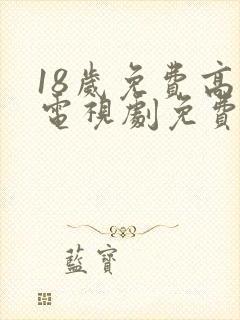 18歲免費高
電視劇免費
藍寶